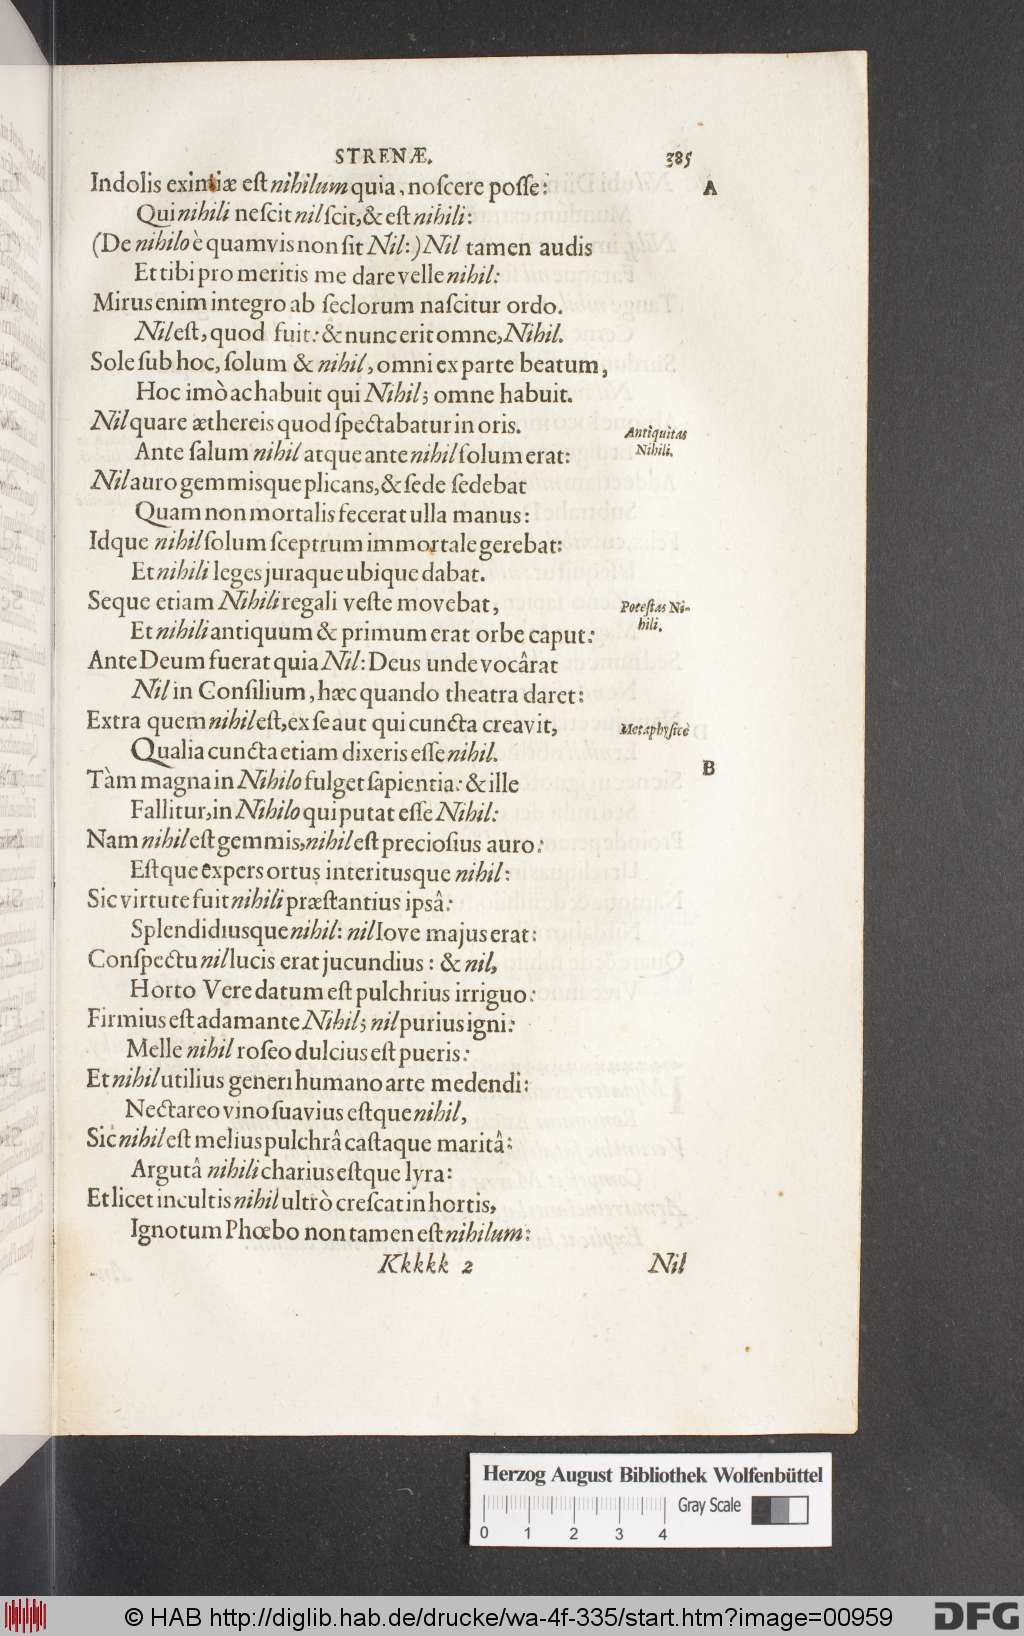 STRENÆ. 385
Indolis eximiæ est nihilum quia, noscere posse: A
Qui nihili nescit nil scit, & est nihili:
(De nihilo è quamvis non sit Nil:) Nil tamen audis
Et tibi pro meritis me dare velle nihil:
Mirus enim integro ab seclorum nascitur ordo.
Nil est, quod fuit: & nunc erit omne, Nihil.
Sole sub hoc, solum & nihil, omni ex parte beatum,
Hoc imò ac habuit qui Nihil; omne habuit.
Nil quare æthereis quod spectabatur in oris.
Antiquitas
Nihili.
Ante salum nihil atque ante nihil solum erat:
Nil auro gemmisque plicans, & sede sedebat
Quam non mortalis fecerat ulla manus:
Idque nihil solum sceptrum immortale gerebat:
Et nihili leges juraque ubique dabat.
Seque etiam Nihili regali veste movebat,
Potestas Ni-
hili.
Et nihili antiquum & primum erat orbe caput:
Ante Deum fuerat quia Nil: Deus unde vocârat
Nil in Consilium, hæc quando theatra daret:
Extra quem nihil est, ex se aut qui cuncta creavit,
Metaphysicè
Qualia cuncta etiam dixeris esse nihil.
B
Tàm magna in Nihilo fulget sapientia: & ille
Fallitur, in Nihilo qui putat esse Nihil:
Nam nihil est gemmis, nihil est preciosius auro:
Estque expers ortus interitusque nihil:
Sic virtute fuit nihili præstantius ipsâ:
Splendidiusque nihil: nil Iove majus erat:
Conspectu nil lucis erat jucundius: & nil,
Horto Vere datum est pulchrius irriguo:
Firmius est adamante Nihil; nil purius igni:
Melle nihil roseo dulcius est pueris:
Et nihil utilius generi humano arte medendi:
Nectareo vino suavius estque nihil,
Sic nihil est melius pulchrâ castaque maritâ:
Argutâ nihili charius estque lyra:
Et licet incultis nihil ultrò crescat in hortis,
Ignotum Phœbo non tamen est nihilum:
Kkkkk 2 Nil
Herzog August Bibliothek Wolfenbüttel
Gray Scale
0 1 2 3 4
© HAB http://diglib.hab.de/drucke/wa-4f-335/start.htm?image=00959
DFG